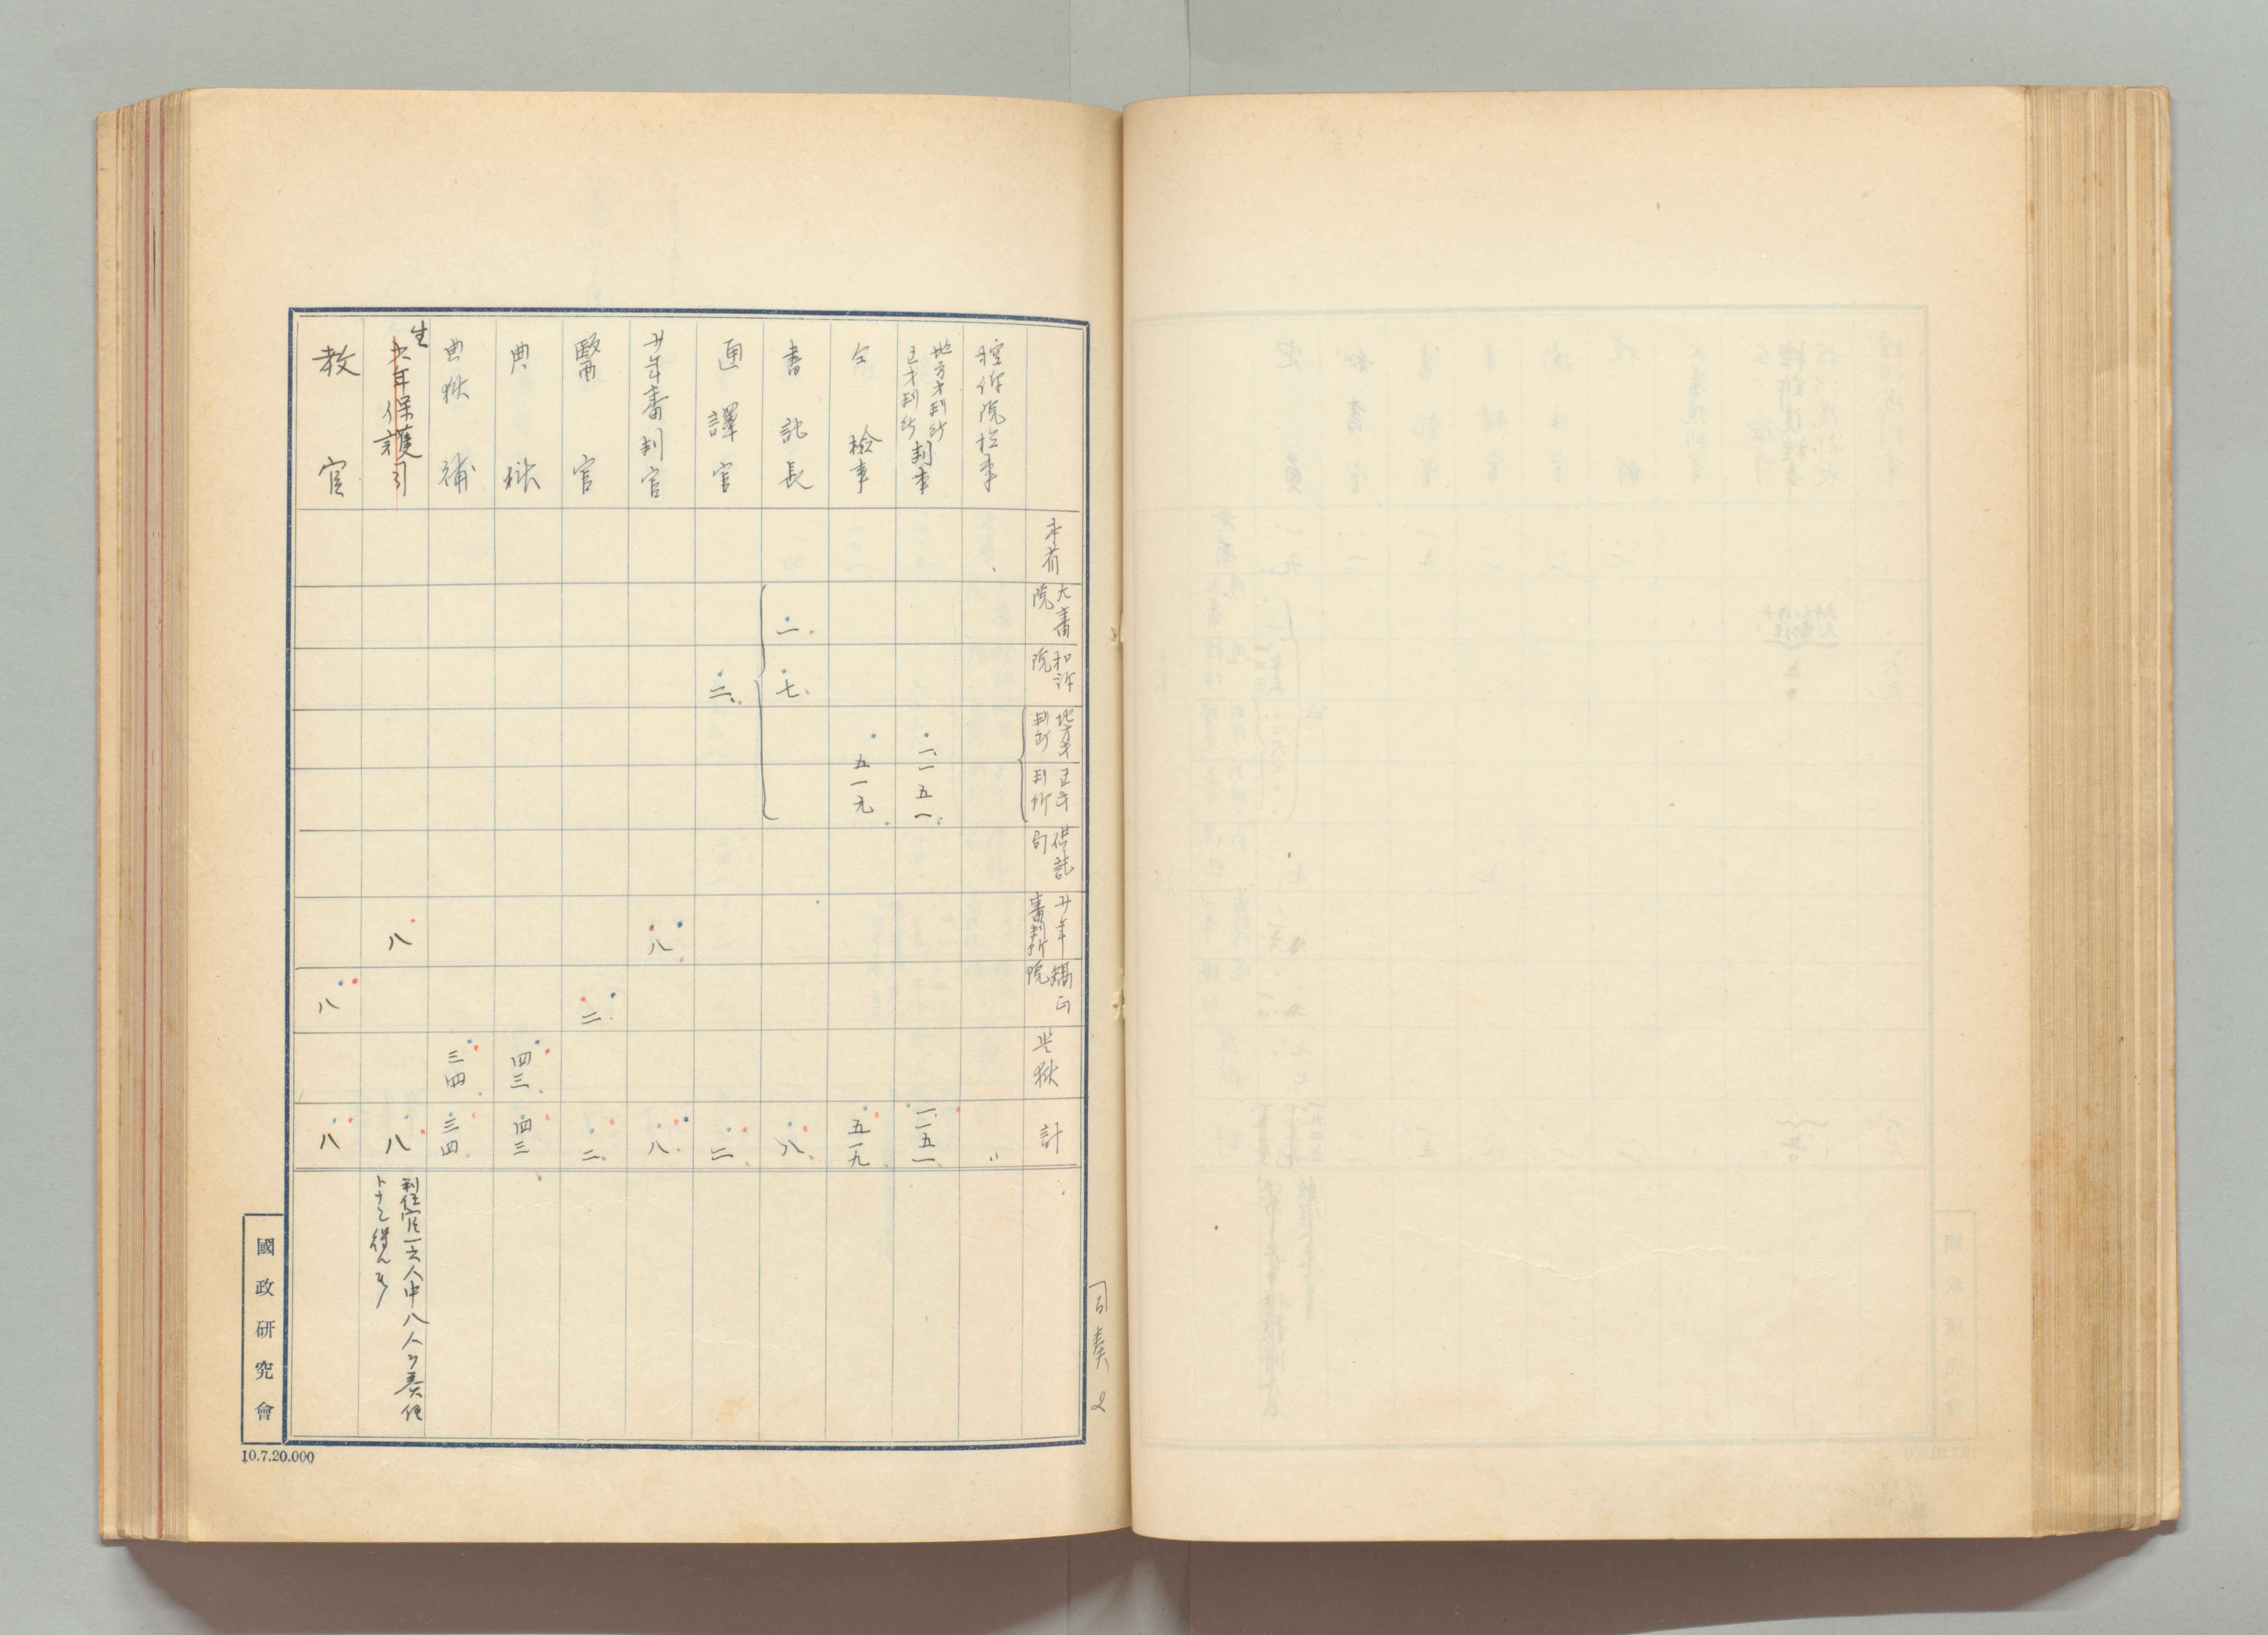 本省
大審院
控訴院
地方判所
区才判所
供託局
少年審判所
矯正院
監獄
計
控訴院検事
〃
地方才判所
区才判所 判事
一、一五一
一一五一
仝 検事
五一九
五一九
書記長
一
七
八
通譯官
二
二
少年審判官
八
八
醫官
二
二
典獄
四三
四三
典獄補
三四
三四
生
少年保護司
八
八
判任官一六人中八人ヲ奏任
トナシ得ル
教官
八
八
司奏 2
國政研究會
10.7.20.000